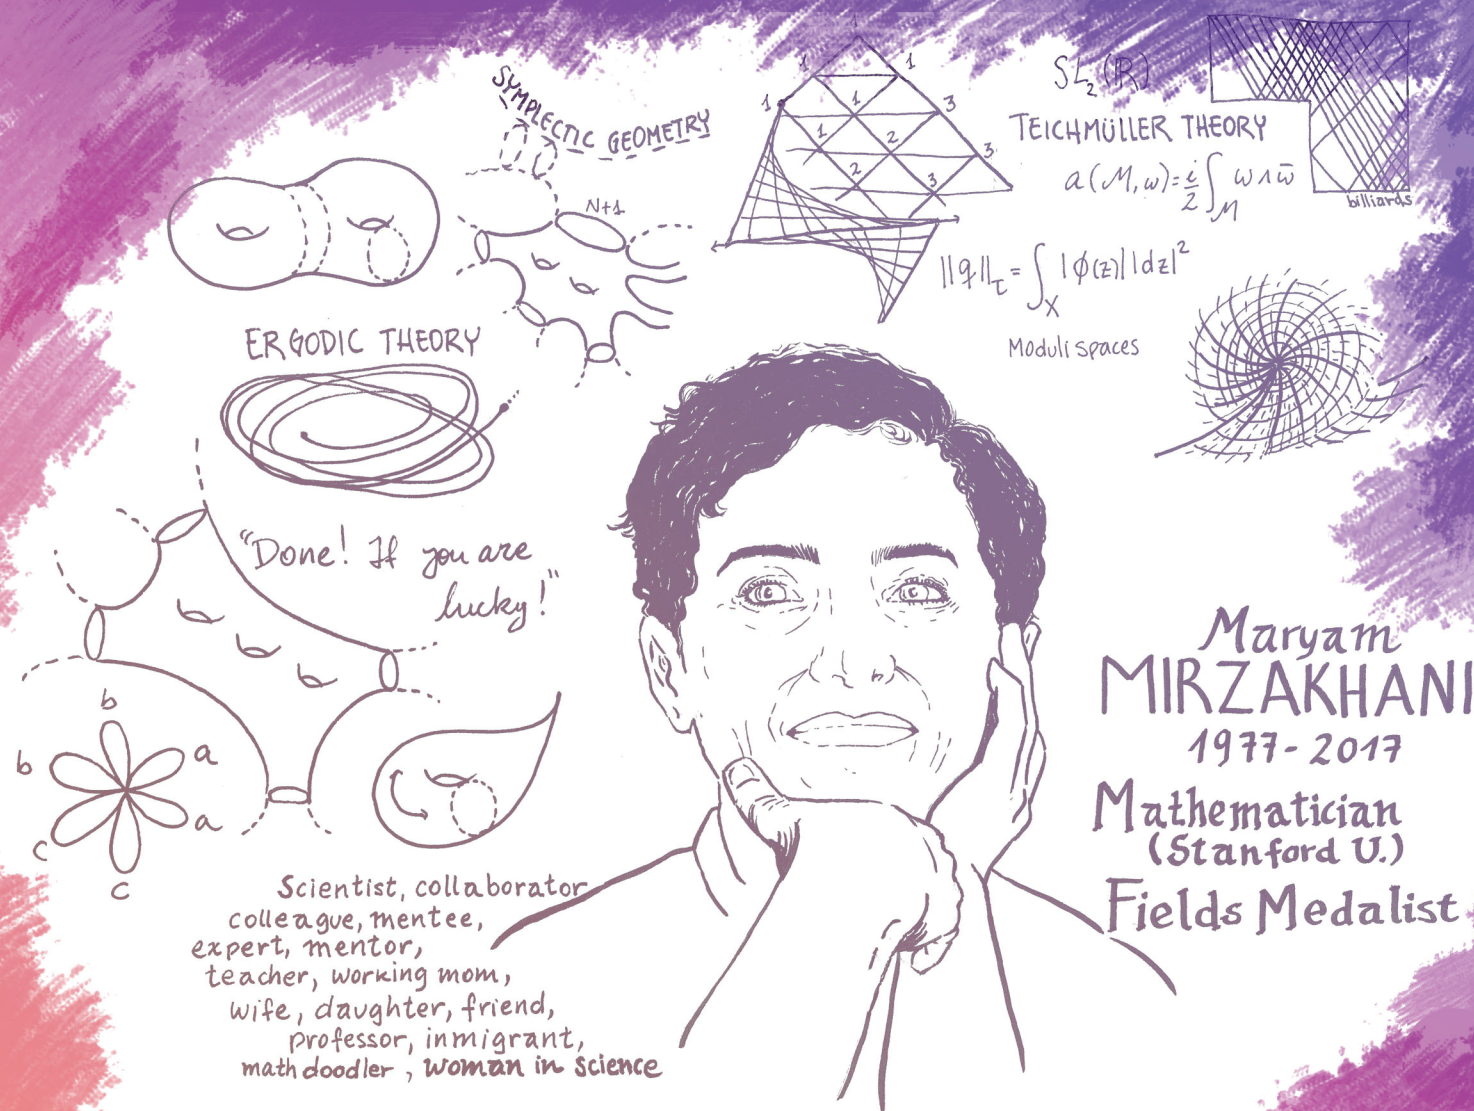 SYMPLECTIC GEOMETRY
N+1
1
1
1
1
1
3
2
2
3
2
3
SL₂(ℝ)
TEICHMÜLLER THEORY
a(M,ω)=i/2 ∫_M ω∧ω̄
billiards
||q||_τ = ∫_X |φ(z)||dz|²
Moduli spaces
ERGODIC THEORY
"Done! If you are
lucky!"
b
b
a
a
c
c
Maryam
MIRZAKHANI
1977-2017
Mathematician
(Stanford U.)
Fields Medalist
Scientist, collaborator
colleague, mentee,
expert, mentor,
teacher, working mom,
wife, daughter, friend,
professor, inmigrant,
math doodler, woman in science